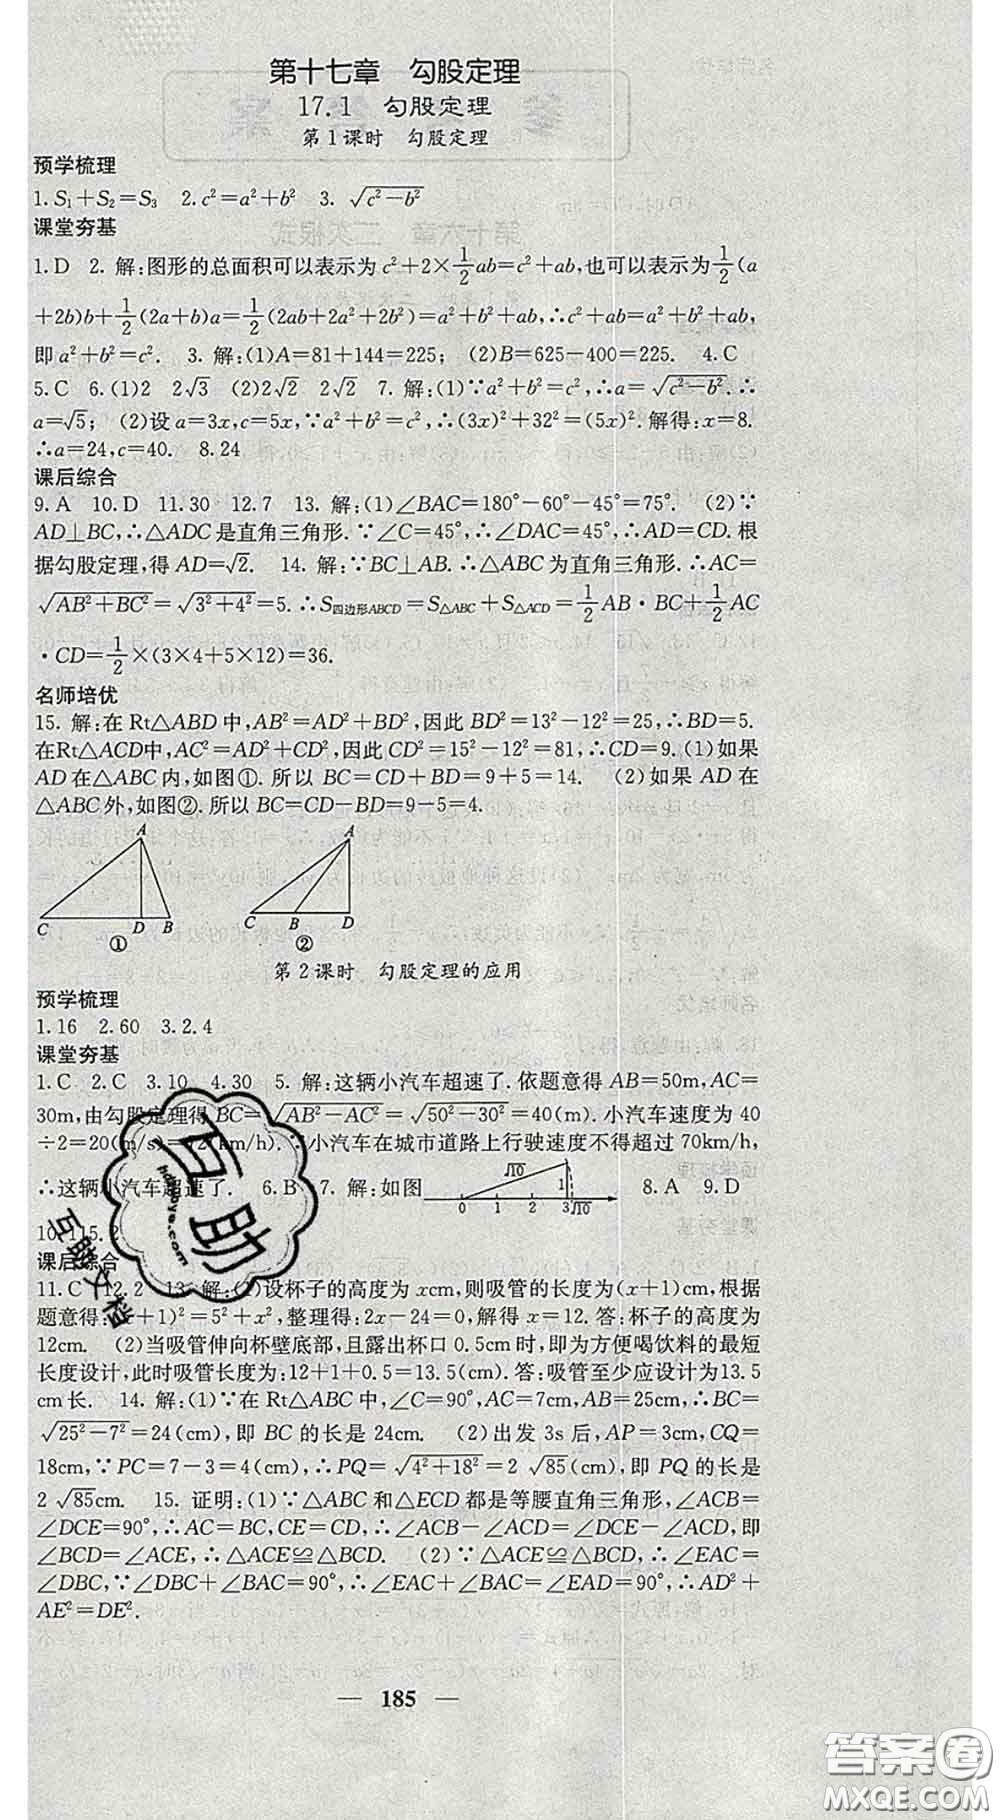 第十七章　勾股定理
17.1　勾股定理
第1课时　勾股定理
预学梳理
1.S₁+S₂=S₃　2.c²=a²+b²　3. √(c²-b²)
课堂夯基
1.D　2. 解:图形的总面积可以表示为c²+2×1/2ab=c²+ab,也可以表示为1/2(a
+2b)b+1/2(2a+b)a=1/2(2ab+2a²+2b²)=a²+b²+ab,∴c²+ab=a²+b²+ab,
即a²+b²=c².　3. 解:(1)A=81+144=225;　(2)B=625-400=225.　4.C
5.C　6.(1)2　2√3　(2)2√2　2√2　7. 解:(1)∵a²+b²=c²,∴a=√(c²-b²).∴
a=√5;　(2)设a=3x,c=5x,∵a²+b²=c²,∴(3x)²+32²=(5x)².解得:x=8.
∴a=24,c=40.　8.24
课后综合
9.A　10.D　11.30　12.7　13. 解:(1)∠BAC=180°-60°-45°=75°.　(2)∵
AD⊥BC,∴△ADC是直角三角形.∵∠C=45°,∴∠DAC=45°,∴AD=CD.根
据勾股定理,得AD=√2.　14. 解:∵BC⊥AB.∴△ABC为直角三角形.∴AC=
√(AB²+BC²)=√(3²+4²)=5.∴S四边形ABCD=S△ABC+S△ACD=1/2AB·BC+1/2AC
·CD=1/2×(3×4+5×12)=36.
名师培优
15. 解:在Rt△ABD中,AB²=AD²+BD²,因此BD²=13²-12²=25,∴BD=5.
在Rt△ACD中,AC²=AD²+CD²,因此CD²=15²-12²=81,∴CD=9.(1)如果
AD在△ABC内,如图①.所以BC=CD+BD=9+5=14.　(2)如果AD在
△ABC外,如图②.所以BC=CD-BD=9-5=4.
A
C　D　B
①
A
C　B　D
②
第2课时　勾股定理的应用
预学梳理
1.16　2.60　3.2.4
课堂夯基
1.C　2.C　3.10　4.30　5. 解:这辆小汽车超速了.依题意得AB=50m,AC=
30m,由勾股定理得BC=√(AB²-AC²)=√(50²-30²)=40(m).小汽车速度为40
÷2=20(m/s)=72(km/h).∵小汽车在城市道路上行驶速度不得超过70km/h,
∴这辆小汽车超速了.　6.B　7. 解:如图
√10　1
0　1　2　3　√10
8.A　9.D
10.115.2
课后综合
11.C　12.2　13. 解:(1)设杯子的高度为xcm,则吸管的长度为(x+1)cm,根据
题意得:(x+1)²=5²+x²,整理得:2x-24=0,解得x=12.答:杯子的高度为
12cm.　(2)当吸管伸向杯壁底部,且露出杯口0.5cm时,即为方便喝饮料的最短
长度设计,此时吸管长度为:12+1+0.5=13.5(cm).答:吸管至少应设计为13.5
cm长.　14. 解:(1)∵在Rt△ABC中,∠C=90°,AC=7cm,AB=25cm,∴BC=
√(25²-7²)=24(cm),即BC的长是24cm.　(2)出发3s后,AP=3cm,CQ=
18cm,∵PC=7-3=4(cm),∴PQ=√(4²+18²)=2√85(cm),即PQ的长是
2√85cm.　15. 证明:(1)∵△ABC和△ECD都是等腰直角三角形,∠ACB=
∠DCE=90°,∴AC=BC,CE=CD,∴∠ACB-∠ACD=∠DCE-∠ACD,即
∠BCD=∠ACE,∴△ACE≌△BCD.　(2)∵△ACE≌△BCD,∴∠EAC=
∠DBC,∵∠DBC+∠BAC=90°,∴∠EAC+∠BAC=∠EAD=90°,∴AD²+
AE²=DE².
— 185 —
互助
互助文档
答案圈
MXQE.COM